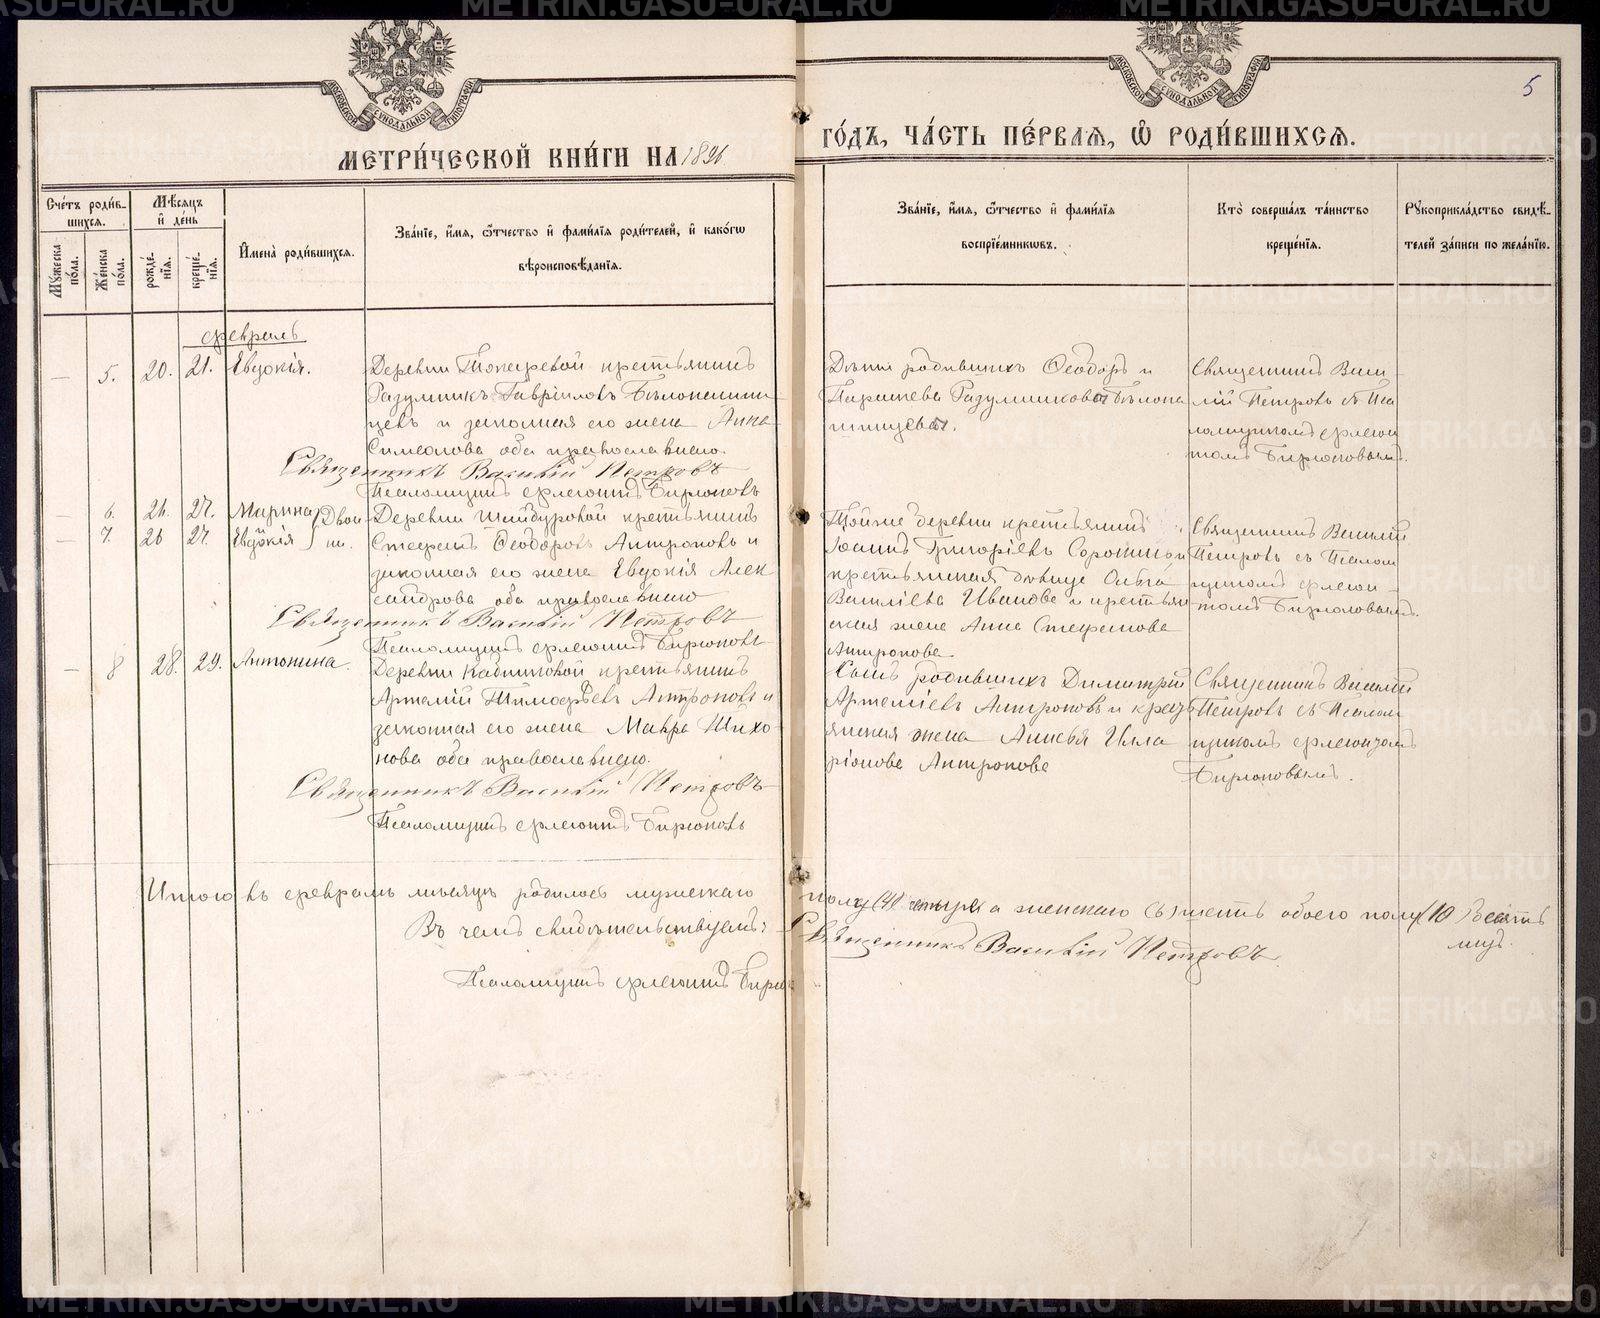 МЕТРИ́ЧЕСКОЙ КНИ́ГИ НА 1896
ГО́ДЪ, ЧА́СТЬ ПЕ́РВАЯ, Ѡ РОДИ́ВШИХСЯ.
5
МОСКОВСКОЙ СУНОДАЛЬНОЙ ТИПОГРАФІИ
МОСКОВСКОЙ СУНОДАЛЬНОЙ ТИПОГРАФІИ
Сче́тъ роди́в-
шихся.
Мѣ́сяцъ
и҆ де́нь
Мꙋ́жеска
по́ла.
Же́нска
по́ла.
рожде́-
нїя.
креще́-
нїя.
И҆мена̀ роди́вшихся.
Зва́нїе, и҆́мя, ѻ҆́тчество и҆ фами́лїя роди́телей, и҆ како́гѡ
вѣроисповѣ́данїя.
Зва́нїе, и҆́мя, ѻ҆́тчество и҆ фами́лїя
воспрїе́мникѡвъ.
Кто̀ соверша́лъ та́инство
креще́нїя.
Рꙋкоприкла́дство свидѣ́-
телей за́писи по жела́нїю.
февраль
— 5. 20. 21. Евдокія.
Деревни Токаревой крестьянинъ
Разумникъ Гавріиловъ Бѣлопашин-
цевъ и законная его жена Анна
Симеонова оба православнаго.
Священникъ Василій Петровъ
Псаломщикъ Флегонтъ Бирюковъ
Дѣти родившихъ Ѳеодоръ и
Параскева Разумниковы Бѣлопа
шинцевы.
Священникъ Васи-
лій Петровъ съ Пса
ломщикомъ Флегон
томъ Бирюковымъ.
— 6. 26. 27. Марина
— 7. 26 27. Евдокія
Двой-
ни.
Деревни Шайдуровой крестьянинъ
Стефанъ Ѳеодоровъ Антроповъ и
законная его жена Евдокія Алек
сандрова оба православнаго
Священникъ Василій Петровъ
Псаломщикъ Флегонтъ Бирюковъ
Тойже деревни крестьянинъ
Іоаннъ Григоріевъ Сорокинъ и
крестьянская дѣвица Ольга
Василіева Иванова и крестьян
ская жена Анна Стефанова
Антропова
Священникъ Василій
Петровъ съ Псалом
щикомъ Флегон-
томъ Бирюковымъ.
— 8 28. 29. Антонина.
Деревни Кабанковой крестьянинъ
Артемій Тимоѳеевъ Антроповъ и
законная его жена Мавра Тихо
нова оба православнаго.
Священникъ Василій Петровъ
Псаломщикъ Флегонтъ Бирюковъ
Сынъ родившихъ Димитрій
Артеміевъ Антроповъ и кресть
янская жена Анисья Илла
ріонова Антропова
Священникъ Василій
Петровъ съ Псалом
щикомъ Флегонтомъ
Бирюковымъ.
Итого въ февралѣ мѣсяцѣ родилось мужескаго полу (4) четыре а женскаго (6) шесть обоего полу (10) десять
душ.
Въ чемъ свидѣтельствуемъ: Священникъ Василій Петровъ.
Псаломщикъ Флегонтъ Бирюк
METRIKI.GASO-URAL.RU